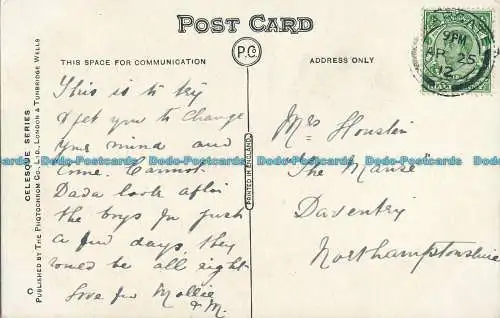 POST CARD
THIS SPACE FOR COMMUNICATION
P.Co.
ADDRESS ONLY
9 PM
AP 25
12
This is to try
& get you to change
your mind and
come. Cannot
Dada look after
the boys for just
a few days, they
would be all right
Love fr Mollie
& M.
Mrs
"The Manse"
Daventry
Northamptonshire
CELESQUE SERIES
PUBLISHED BY THE PHOTOCHROM CO., LTD., LONDON & TUNBRIDGE WELLS
PRINTED IN ENGLAND
Dodo-Postcards Dodo-Postcards Dodo-Postcards Dodo-Postcards Dodo-Postcards